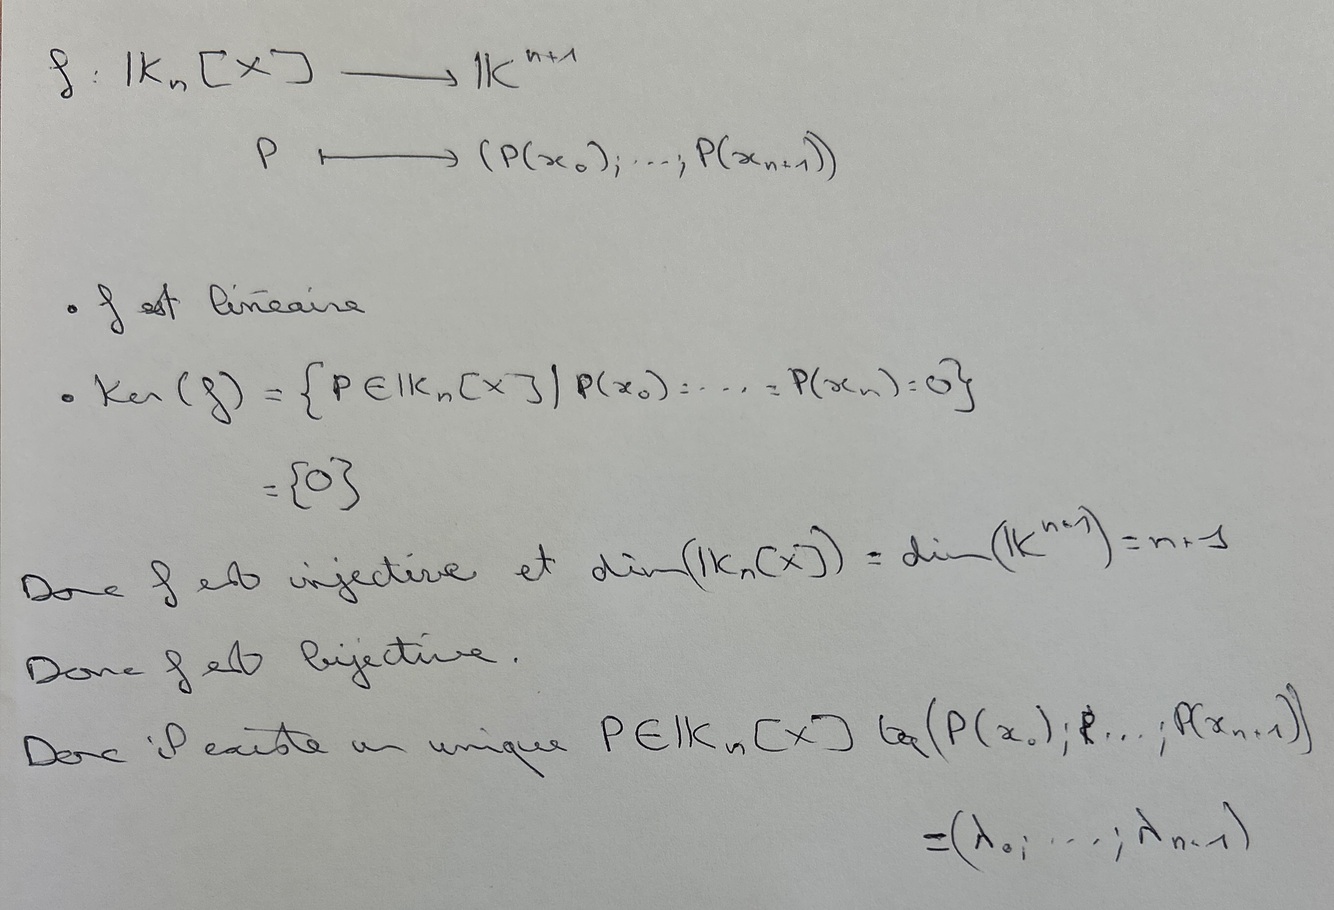 f : 𝕂ₙ[X] ⟶ 𝕂ⁿ⁺¹
P ⟼ (P(x₀); ...; P(xₙ₊₁))
• f est linéaire
• Ker(f) = {P ∈ 𝕂ₙ[X] | P(x₀) = .... = P(xₙ) = 0}
= {0}
Donc f est injective et dim(𝕂ₙ[X]) = dim(𝕂ⁿ⁺¹) = n+1
Donc f est bijective.
Donc il existe un unique P ∈ 𝕂ₙ[X] tq (P(x₀); ...; P(xₙ₊₁))
= (λ₀; ....; λₙ₊₁)